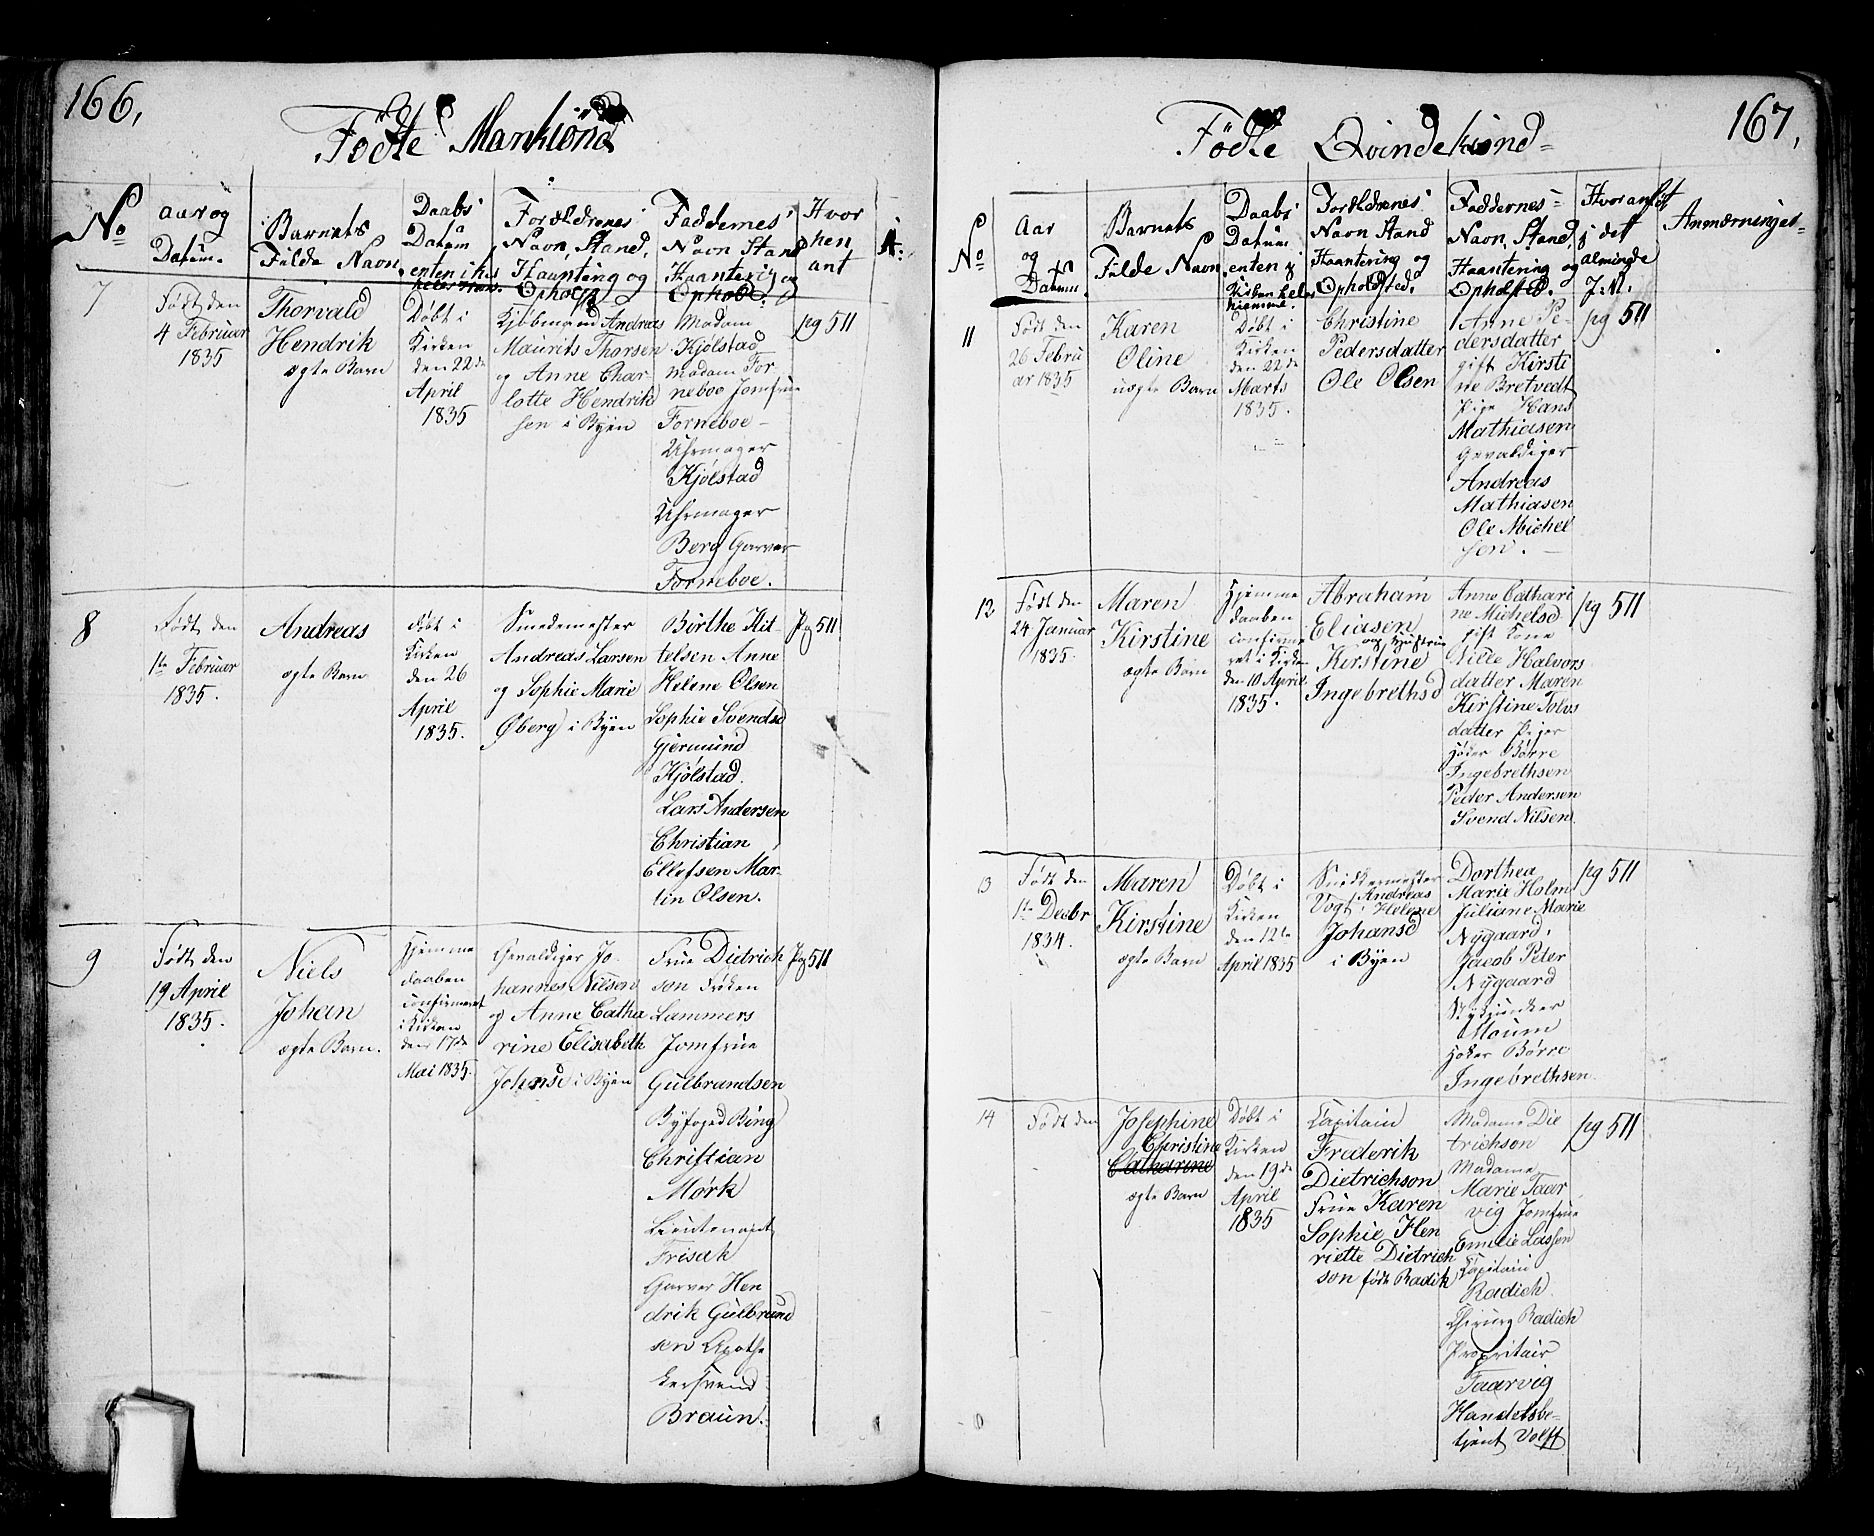 166,
Fødte Mankiønd
No
Aar og
Datum.
Barnets
Fulde Navn
Daabs
Datum
enten i Kir
Forældrenes
Navn, Stand,
Haantering og
Ophold
Faddernes
Navn Stand
Haantering og
Ophold.
Hvor
hen
ant
A:
7
Født den
4 Februar
1835
Thorvald
Hendrik
ægte Barn
Døbt i
Kirken
den 22de
April
1835
Kjøbmand Andreas
Maurits Thorsen
og Anne Char-
lotte Hendrik
sen i Byen
Madam
Kjølstad
Madam For
neboe Jomfrue
Forneboe
Uhrmager
Kjølstad
Uhrmager
Berg Garver
Forneboe.
pg 511
8
Født den
1te Februar
1835.
Andreas
ægte Barn
døbt i
Kirken
den 26
April
1835.
Smedemester
Andreas Larsen
og Sophie Marie
Øberg i Byen
Birthe Kit-
telsen Anne
Helene Olsen
Sophie Svendsd
Gjermund
Kjølstad.
Lars Andersen
Christian
Ellefsen Mar-
tin Olsen.
pg 511
9
Født den
19 April
1835.
Niels
Johan
ægte Barn.
Hjemme
daaben
confirmeret
i Kirken
den 17de
Mai 1835.
Gevaldiger Jo
hannes Nilsen
og Anne Catha
rine Elisabeth
Johnsd i Byen
Frue Dietrich
son Frøken
Lammers
Jomfrue
Gulbrandsen
Byfoged Bing
Christian
Mørk
Lieutenant
Frisak
Garver Hen
drik Gulbrand
sen Apothe
kersvend
Braun.
pg 511
167,
Fødte Qvindekiønd
No
Aar
og
Datum.
Barnets
Fulde Navn
Daabs
Datum
enten i
Kirken eller
hiemme.
Forældrenes
Navn Stand
Haantering og
Opholdsted,
Faddernes
Navn, Stand,
Haantering og
Opholdsted.
Hvor anført
i det
alminde
J:N.
Anmærninger
11
Født den
26 Febru
ar 1835
Karen
Oline
uægte Barn
Døbt i
Kirken
den 22de
Marts
1835.
Christine
Pedersdatter
Ole Olsen
Anne Pe-
dersdatter
gift Kirste
ne Bretvedt
Pige Hans
Mathiasen
Gevaldiger
Andreas
Mathiasen
Ole Michel
sen.
pg 511
12
Født den
24 Januar
1835.
Maren
Kirstine
ægte Barn
Hjemme
daaben
confirme
ret i Kirken
den 10 April
1835.
Abraham
Eliasen
og Hustrue
Kirstine
Ingebrethsd
Anne Cathari
ne Michelsd
gift Kone
Nille Halvors
datter Maren
Kirstine Tolvs
datter Piger
Høker Børre
Ingebrethsen
Peder Andersen
Svend Nilsen.
pg 511
13
Født den
1te Decbr
1834.
Maren
Kirstine
ægte Barn
Døbt i
Kirken
den 12te
April 1835
Snedkermester
Andreas
Vogt Helene
Johansd
i Byen
Dorthea
Marie Holm
Juliane Marie
Nygaard,
Jacob Peter
Nygaard
Moum
Høker Børre
Ingebrethsen.
pg 511
14
Født den
Josephine
Christine
Catharine
ægte Barn
Døbt i
Kirken
den 19de
April
1835
Capitain
Frederik
Dietrichson
Frue Karen
Sophie Hen
riette Dietrich
son født Radik
Madame Die
trichson
Madame
Marie Taar
vig Jomfrue
Emelie Lassen
Capitain
Radich.
Chirurg Radich
Propritair
Taarvig
Handelsbe-
tjent Volff
pg 511